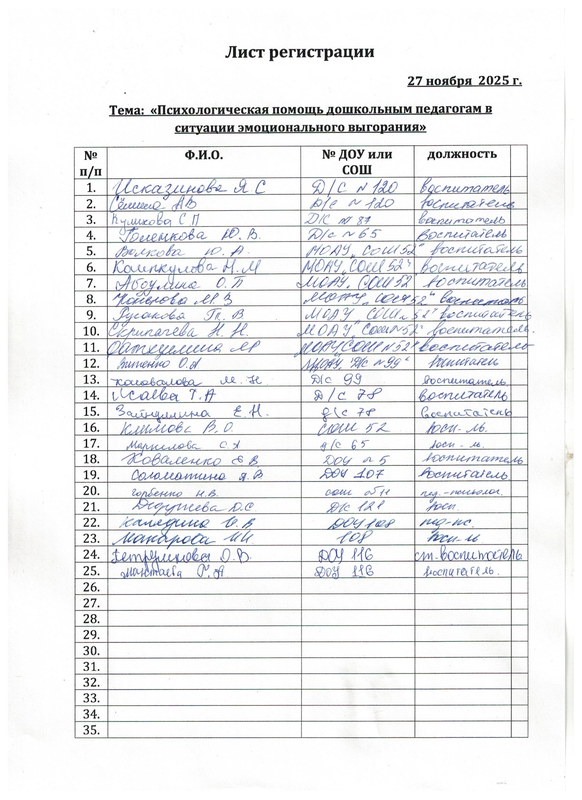 Лист регистрации
27 ноября 2025 г.
Тема: «Психологическая помощь дошкольным педагогам в
ситуации эмоционального выгорания»
№ п/п Ф.И.О. № ДОУ или СОШ должность
1. Исказинова Я С Д/С №120 воспитатель
2. Сёмина АВ Д/с №120 воспитатель
3. Куликова С П Д/С № 87 воспитатель
4. Голенкова Ю. В. Д/с №65 Воспитатель
5. Волкова Ю. А. МОАУ „СОШ 52" воспитатель
6. Н.М МОАУ „СОШ 52" воспитатель
7. Абдулина О. П МОАУ „СОШ 52" воспитатель
8. М З МОАУ „СОШ 52" воспитатель
9. Русакова Т. В МОАУ „СОШ №52" воспитатель
10. Скрипачева Н. Н. МОАУ „СОШ №52" воспитатель.
11. МОАУ СОШ №52" воспитатель
12. О.А Д/с №99" Воспитатель
13. Коновалова М. Н Д/с 99 воспитатель.
14. Исаева Т. А Д/с 78 воспитатель
15. Зайнуллина Е.Н. д/с 78 Воспитатель
16. Климова В. О СОШ 52 восп-ль.
17. д/с 65 восп-ль.
18. Коваленко Е В ДОУ №5 воспитатель
19. Соломатина Я. В ДОУ 107 Воспитатель
20. Горбенко Н.В. сош пед.-психолог.
21. О.С Д/с 121 восп.
22. ДОУ 108 пед-пс.
23. Макарова 108 Восп-ль
24. Петрунькова О.В. ДОУ 116 ст. воспитатель
25. ДОУ 116 воспитатель.
26.
27.
28.
29.
30.
31.
32.
33.
34.
35.